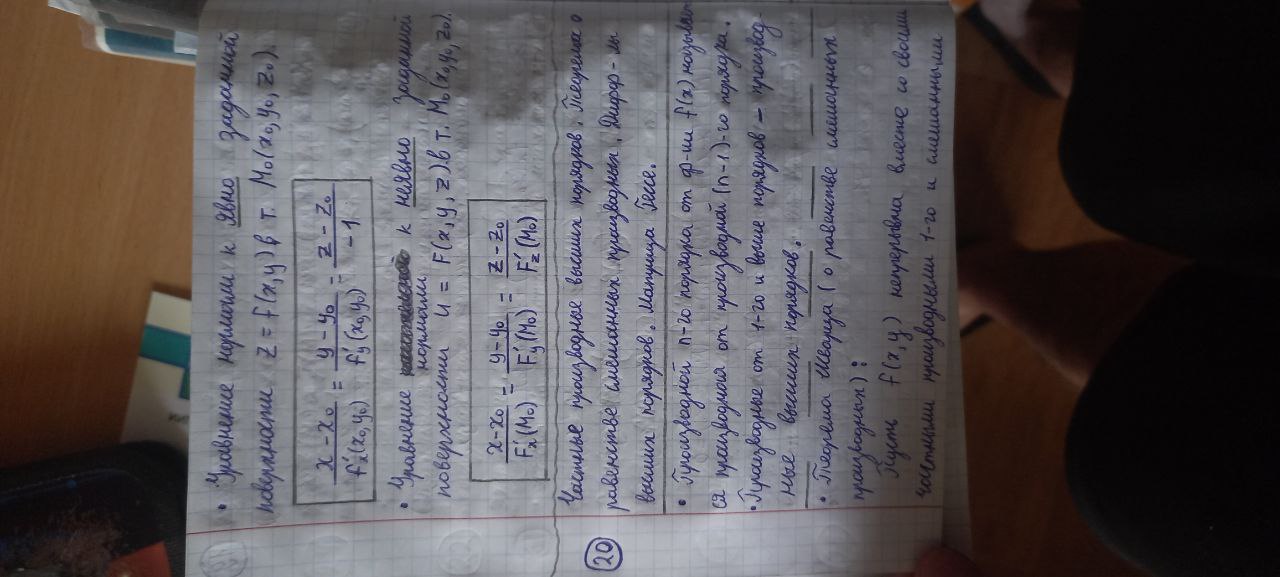 • Уравнение нормали к явно заданной
поверхности z = f(x,y) в т. M₀(x₀,y₀,z₀).
x-x₀/f'ₓ(x₀,y₀) = y-y₀/f'ᵧ(x₀,y₀) = z-z₀/-1
• Уравнение нормали к неявно заданной
поверхности u = F(x,y,z) в т. M₀(x₀,y₀,z₀).
x-x₀/F'ₓ(M₀) = y-y₀/F'ᵧ(M₀) = z-z₀/F'z(M₀)
20 Частные производные высших порядков. Теорема о
равенстве смешанных производных. Дифф-лы
высших порядков. Матрица Гессе.
• Производной n-го порядка от ф-ии f(x) называет
ся производная от производной (n-1)-го порядка.
• Производные от 1-го и выше порядков – производ-
ные высших порядков.
• Теорема Шварца (о равенстве смешанных
производных):
Пусть f(x,y) непрерывна вместе со своими
частными производными 1-го и смешанными